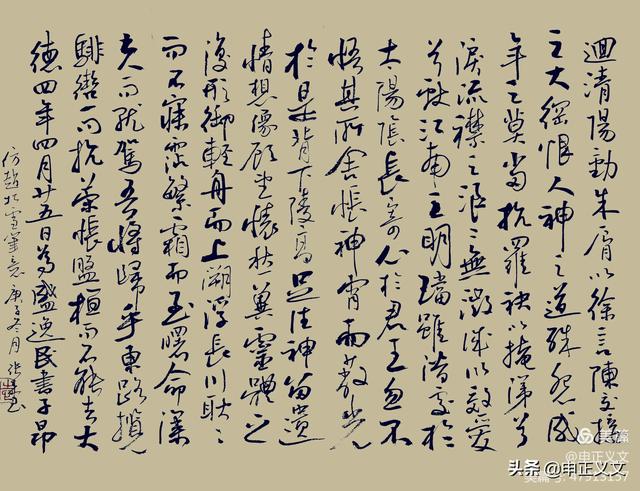 迴清陽動朱唇以徐言陳交接
之大綱恨人神之道殊怨盛
年之莫當抗羅袂以掩涕兮
淚流襟之浪〻無微誠以效愛
兮獻江南之明璫雖潛處於
太陽陰長寄心於君王忽不
悟其所舍悵神宵而蔽光
於是背下陵高足往神留遺
情想像顧望懷愁冀靈體之
復形御輕舟而上溯浮長川耿〻
而不寐霑繁霜而至曙命僕
夫而就駕吾將歸乎東路攬
騑轡而抗策悵盤桓而不能去大
德四年四月廿五日為盛逸民書子昂
仿趙松雪筆意庚子冬月張書
美篇
申正义文
头条 @申正义文
美篇号: 47913157